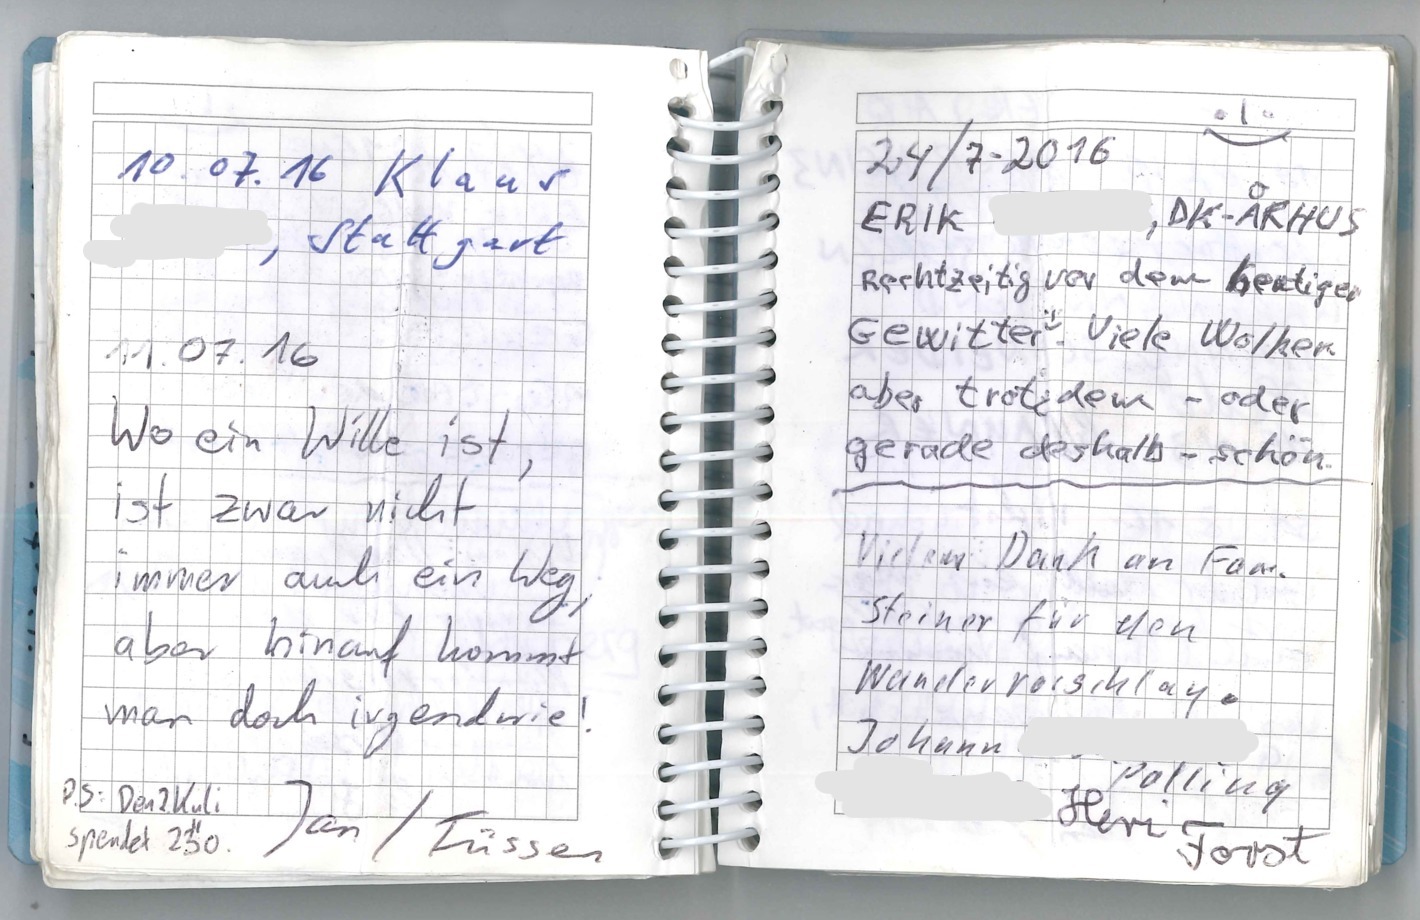 10.07.16 Klaus
, Stuttgart
11.07.16
Wo ein Wille ist,
ist zwar nicht
immer auch ein Weg,
aber hinauf kommt
man doch irgendwie!
P.S: Den 2. Kuli
spendet
Jan / Füssen
24/7-2016
ERIK , DK-ÅRHUS
Rechtzeitig vor dem heutigen
Gewitter. Viele Wolken
aber trotzdem - oder
gerade deshalb - schön.
Vielen Dank an Fam.
Steiner für den
Wandervorschlag.
Johann
Polling
Heri
Forst